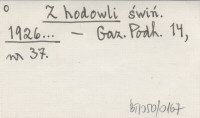 Z hodowli świń.
1926... — Gaz. Podh. 14,
nr 37.
bnp50/0167